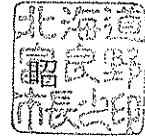 北海道
富良野
市長之印
昭